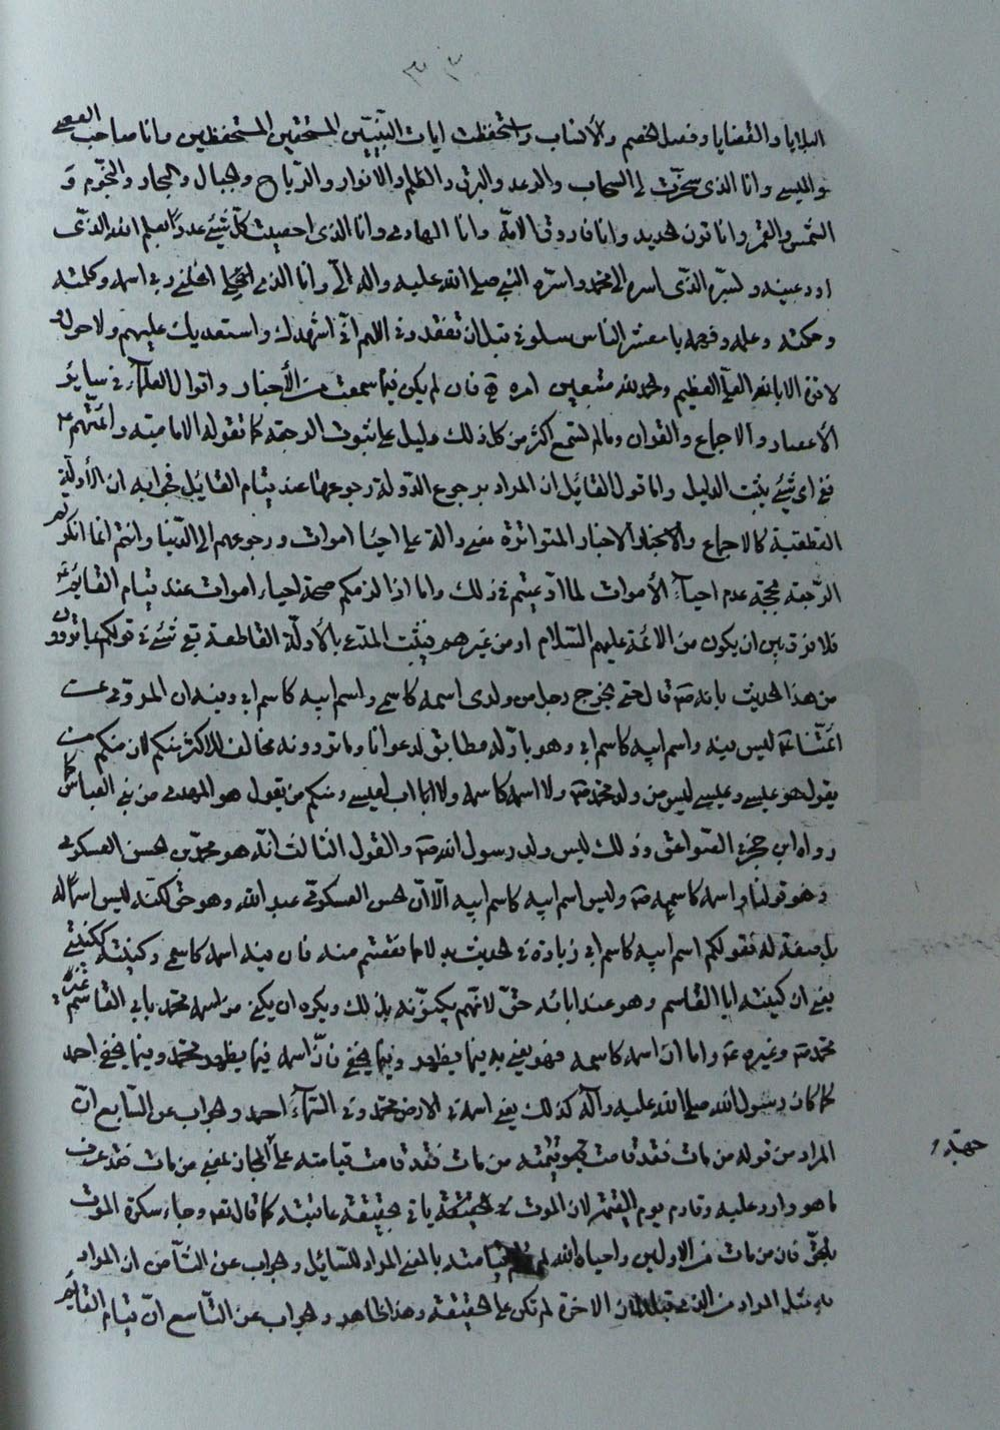 ٣٠٣
البلايا والقضايا وفصل الخصم والأنساب واستحفظت ايات النبيين المستحقين المستحفظين وانا صاحب العصى
والميسم وانا الذى سخرت لى السحاب والرعد والبرق والظلم والانوار والرياح والجبال والبحار والنجوم و
الشمس والقمر وانا قرن الحديد وانا فاروق الامة وانا الهادى وانا الذى احصيت كل شىء عددا بعلم الله الذى
اودعنيه ولسره الذى اسره الى محمد واسره النبى صلى الله عليه واله الى وانا الذى انحلنى ربى اسمه وكلمته
وحكمته وعلمه وفهمه يا معشر الناس سلونى قبل ان تفقدونى اللهم انى اشهدك واستعديك عليهم ولا حول و
لا قوة الا بالله العلى العظيم والحمد لله متبعين امره فان لم يكن فيما سمعت من الأخبار واقوال العلماء فى سائر
الأعصار والاجماع والقران وما لم تسمع اكثر من كل ذلك دليل على ثبوت الرجعة كما تقوله الامامية وائمتهم ع
ففى اى شىء يثبت الدليل واما قول القائل ان المراد برجوع الدولة رجوعها عند قيام القائل فجوابه ان الأدلة
القطعية كالاجماع والاخبار المتواترة دالة على احياء اموات ورجوعهم الى الدنيا وانتم انما انكرتم
الرجعة بحجة عدم احياء الأموات لما ادعيتم فى ذلك واما اذا لزمكم صحة احياء اموات عند قيام القائم ع
فلا فرق بين ان يكون من الائمة عليهم السلام او من غيرهم فيثبت المدعى بالأدلة القاطعة بقى شىء فى قولكم بما تروون
من هذا الحديث بانه ص قال حتى يخرج رجل من ولدى اسمه كاسمى واسم ابيه كاسم ابى وفيه ان المروى عن
ائمتنا ع ليس فيه واسم ابيه كاسم ابى وهو باوله مطابق لدعوانا وما تروونه مخالف للاكثر منكم لان منكم من
يقول هو عيسى وعيسى ليس من ولد محمد ص ولا اسمه كاسمه ولا ابا اب لعيسى ومنكم من يقول هو المهدى من بنى العباس كما
رواه ابن حجر فى الصواعق وذلك ليس ولد رسول الله ص والقول الثالث انه هو محمد بن الحسن العسكرى
وهو قولنا واسمه كاسمه ص وليس اسم ابيه كاسم ابيه الا ان الحسن العسكرى عبد الله وهو حق لكنه ليس اسما له
بل صفة له فقولكم اسم ابيه كاسم ابى زيادة فى الحديث منه فان فيه اسمه كاسمى وكنيته ككنيتى
يعنى ان كنيته ابا القاسم وهو عند ابائه حق لانهم يكنونه بذلك ويكره ان يكنى من اسمه محمد بابى القاسم غير
محمد ص وغيره ع واما ان اسمه كاسمه فهو يعنى به فيما يظهر وفيما يخفى فان اسمه فيما يظهر محمد وفيما يخفى احمد
كما كان رسول الله صلى الله عليه وآله كذلك يعنى اسمه فى الارض محمد وفى السماء احمد والجواب عن السابع ان
المراد من قوله من مات فقد قامت قيامته على المجاز يعنى من مات فقد عرف
ما هو وارد عليه وقادم يوم القيمة لان الموت يأتى بحقيقة عاقبته كما قال تعه وجاء سكرة الموت
بالحق فان من مات من الاولين واحياه الله لم قيامته بالمعنى المراد للسائل والجواب عن الثامن ان المراد
الاخرة لم تكن على الحقيقة وهذا ظاهر والجواب عن التاسع ان قيام القائم